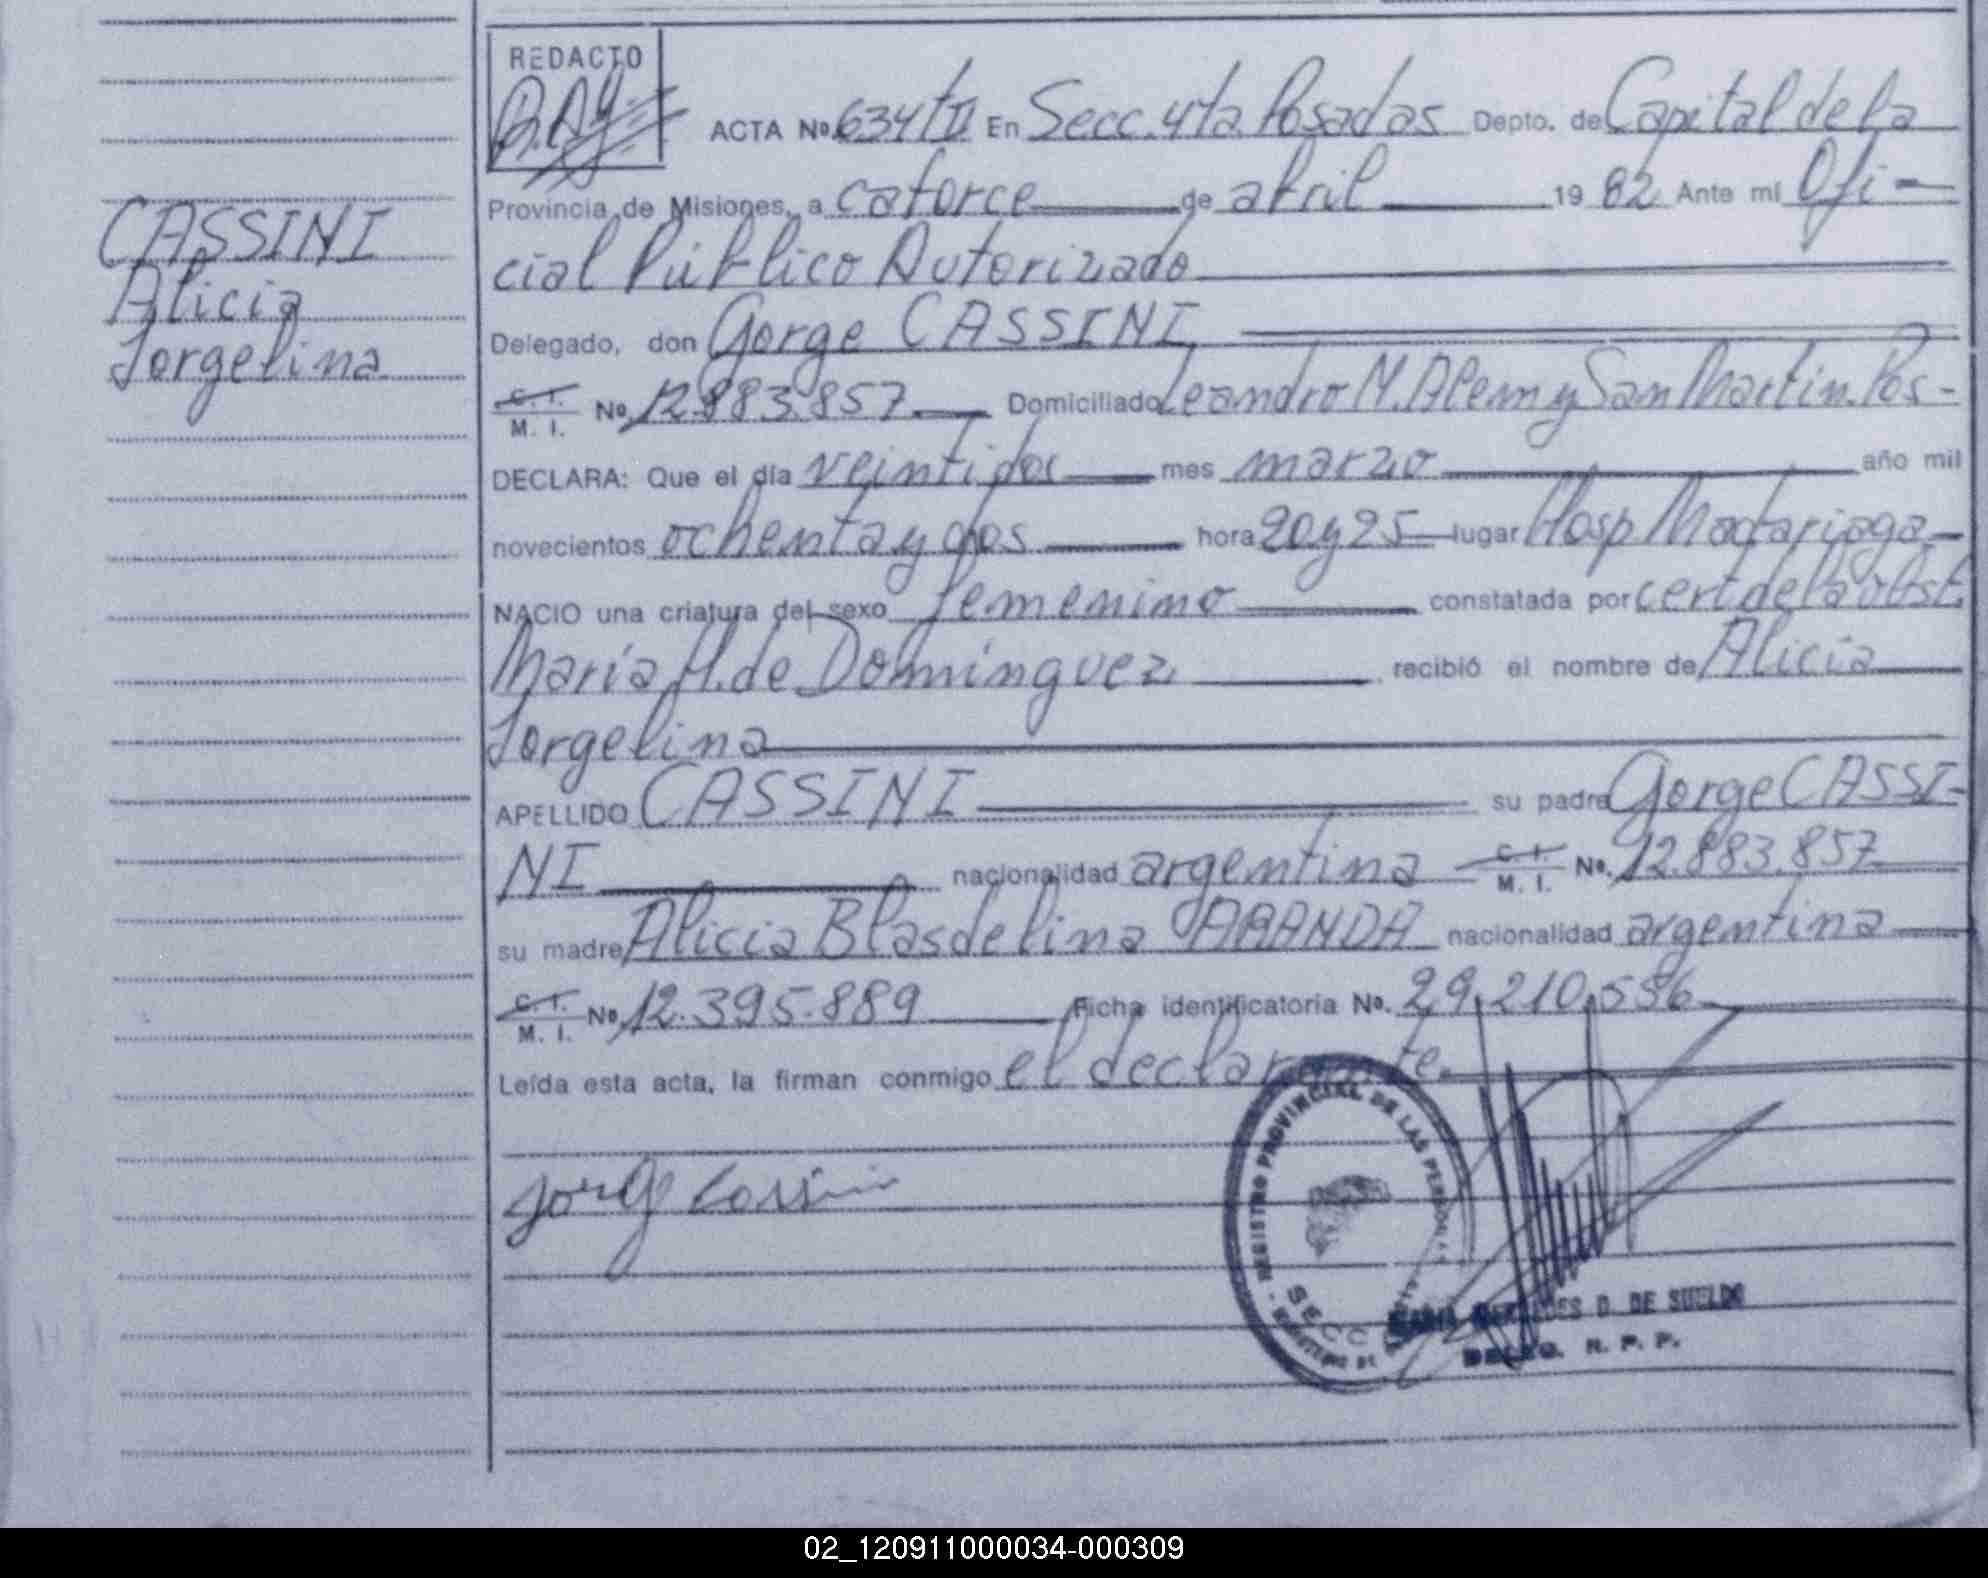 REDACTO
ACTA No. 634/II En Secc. 4ta. Posadas Depto. de Capital de la
Provincia de Misiones, a catorce de abril 1982 Ante mi Ofi-
cial Público Autorizado
CASSINI
Alicia
Jorgelina
Delegado, don Jorge CASSINI
C. I.
M. I. No. 12.883.857 Domiciliado Leandro N. Alem y San Martín. Pos-
DECLARA: Que el día veintidos mes marzo año mil
novecientos ochenta y dos hora 20 y 25 lugar Hosp Madariaga
NACIO una criatura del sexo femenino constatada por cert de la obst.
María H. de Domínguez recibió el nombre de Alicia
Jorgelina
APELLIDO CASSINI su padre Jorge CASSI-
NI nacionalidad argentina C. I.
M. I. No. 12.883.857
su madre Alicia Blasdelina ARANDA nacionalidad argentina
C. I.
M. I. No. 12.395.889 Ficha identificatoria No. 29.210.596
Leída esta acta, la firman conmigo el declarante.
Jorge Cassini
REGISTRO PROVINCIAL DE LAS PERSONAS
SECC
D. DE SUELDO
DELEG. R. P. P.
02_120911000034-000309